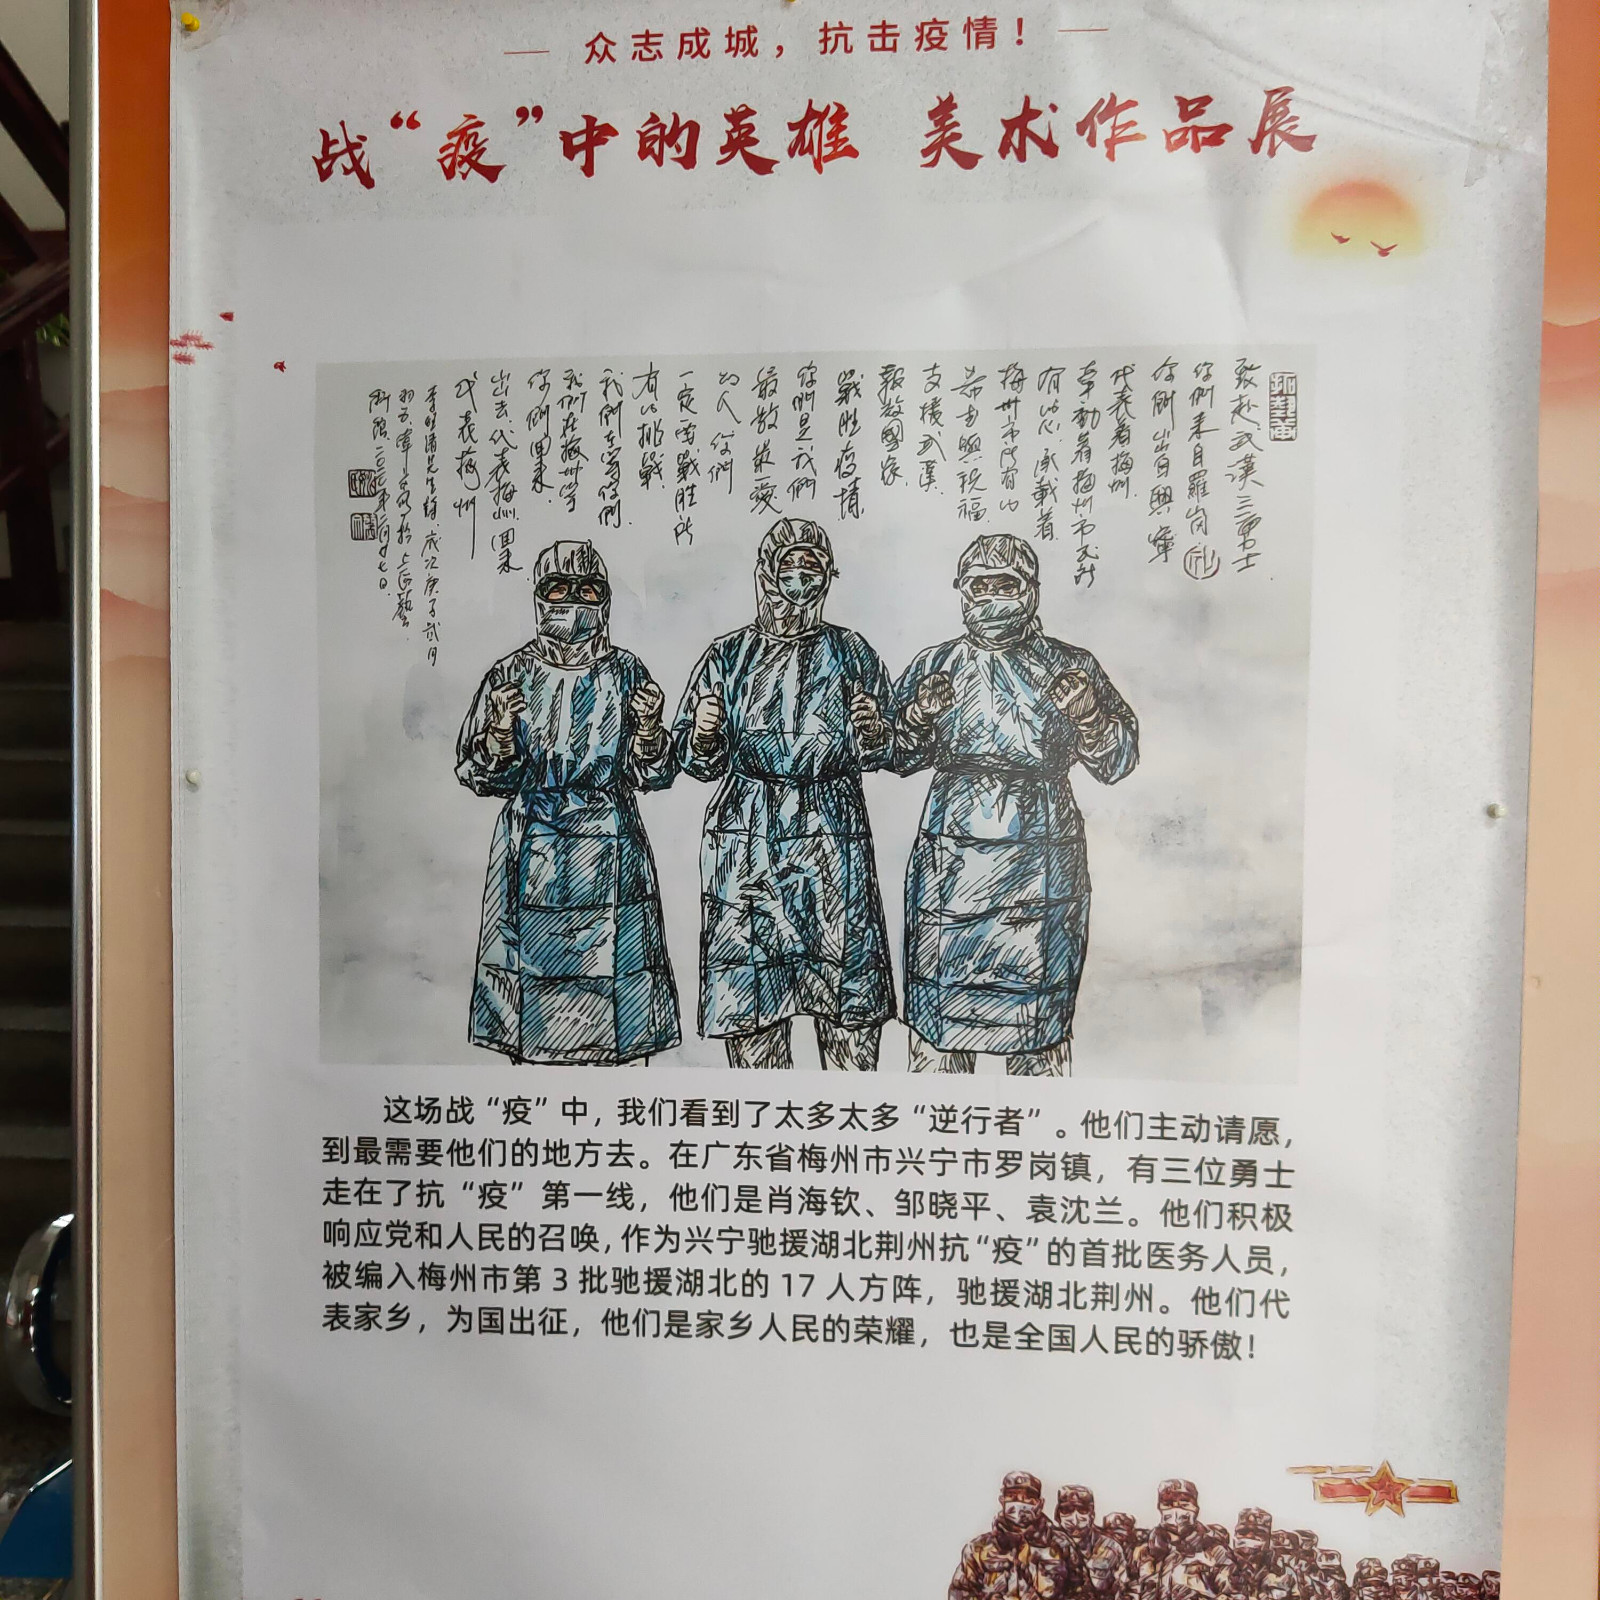 众志成城，抗击疫情！
战“疫”中的英雄 美术作品展
致赴武漢三勇士
你們来自羅岗
你們出自興寧
代表着梅州
牽動着梅州市民所
有的心.承載着
梅州市所有的
希由與祝福
支援武漢.
報效國家
戰胜疫情.
你們是我們
最敬最愛
的人 你們
一定要戰胜所
有的挑戰
我們在等你們.
我們在梅州等
你們回来.
出去代表梅州回来
代表梅州
这场战“疫”中，我们看到了太多太多“逆行者”。他们主动请愿，
到最需要他们的地方去。在广东省梅州市兴宁市罗岗镇，有三位勇士
走在了抗“疫”第一线，他们是肖海钦、邹晓平、袁沈兰。他们积极
响应党和人民的召唤，作为兴宁驰援湖北荆州抗“疫”的首批医务人员，
被编入梅州市第 3 批驰援湖北的 17 人方阵，驰援湖北荆州。他们代
表家乡，为国出征，他们是家乡人民的荣耀，也是全国人民的骄傲！